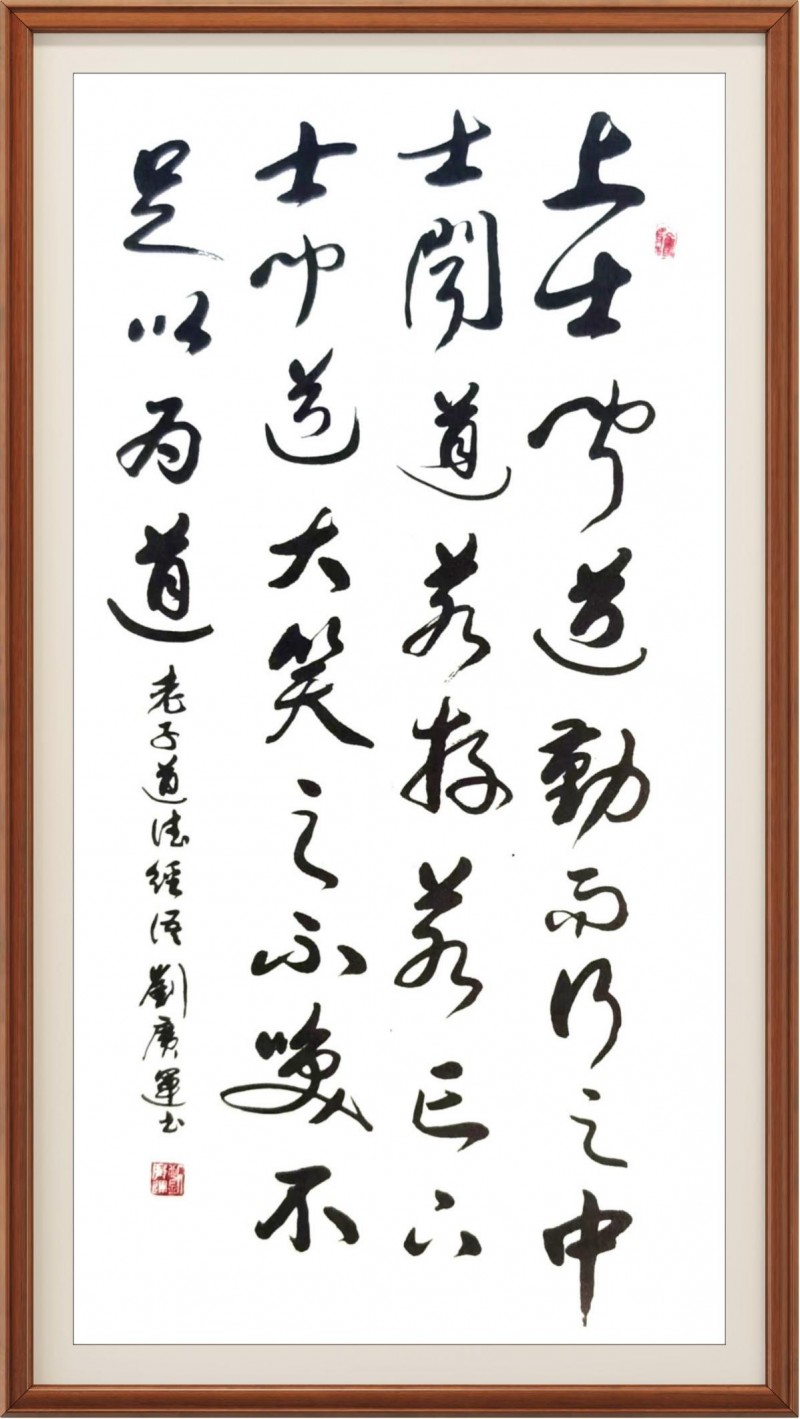 上士聞道勤而行之中
士聞道若存若亡下
士聞道大笑之不笑不
足以為道
老子道德經語 劉廣運書